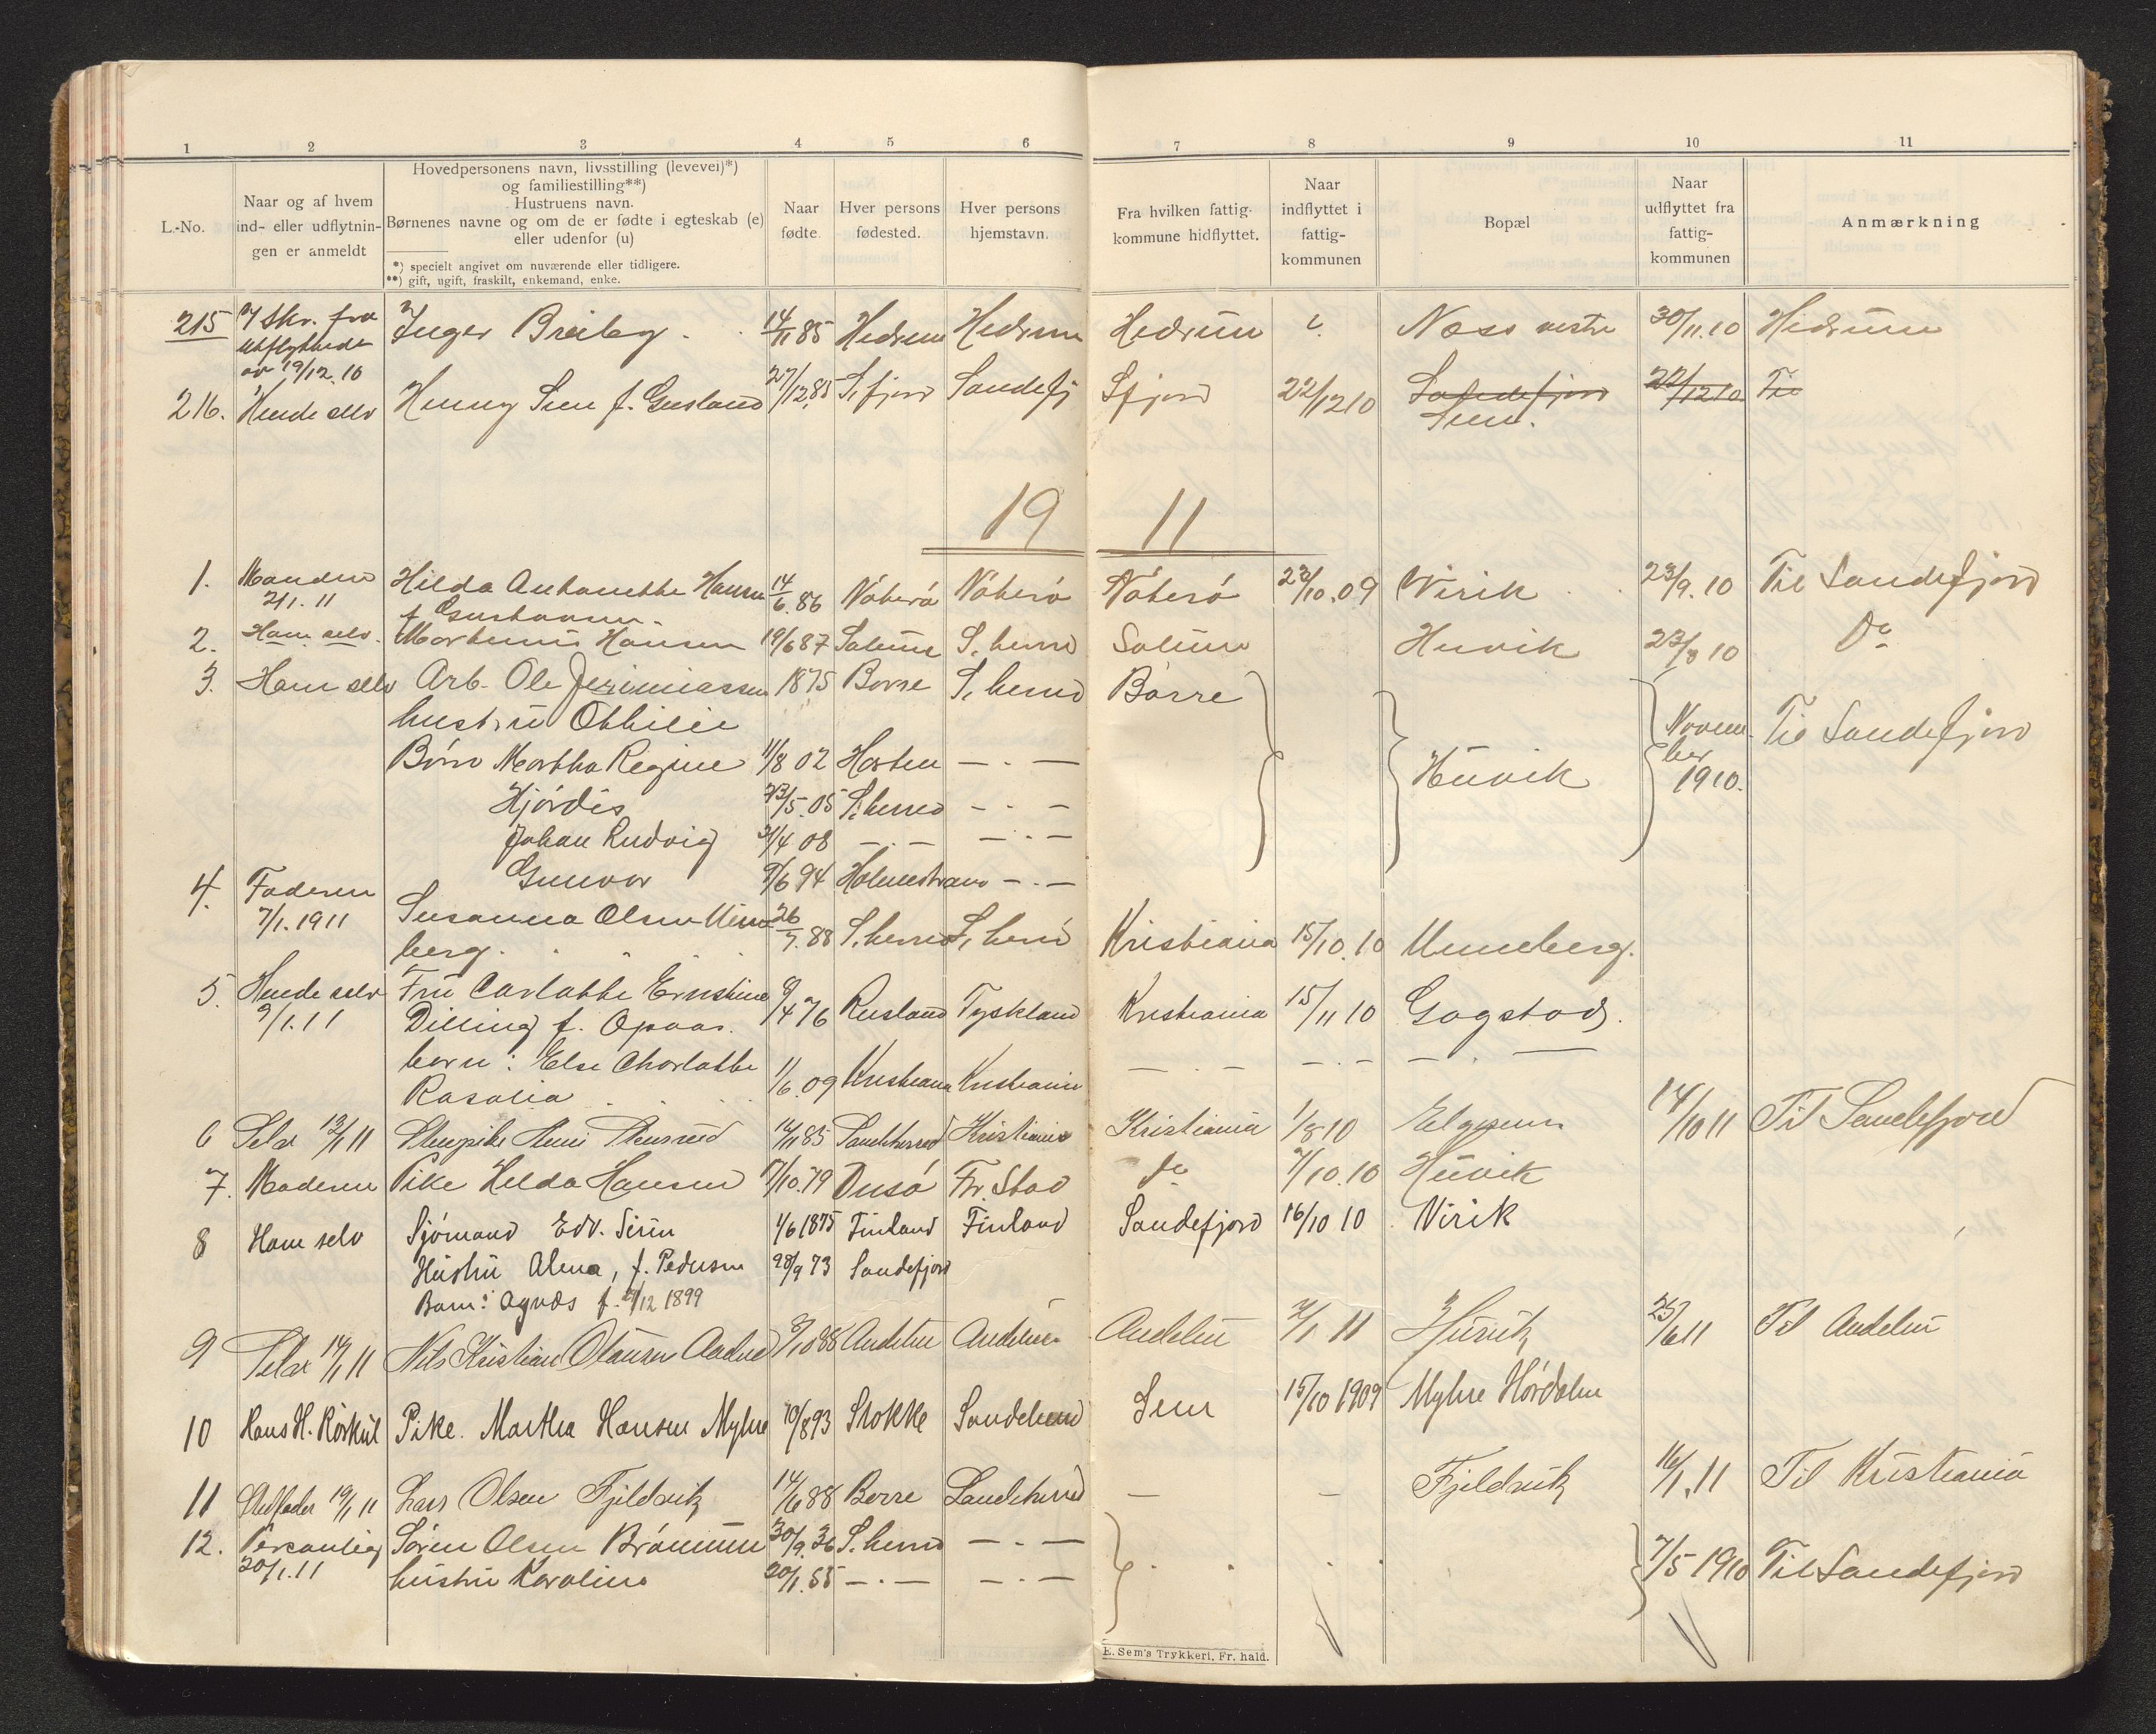 1 2 3 4 5 6 7 8 9 10 11
L.-No.
Naar og af hvem
ind- eller udflytnin-
gen er anmeldt
Hovedpersonens navn, livsstilling (levevei)*)
og familiestilling**)
Hustruens navn.
Børnenes navne og om de er fødte i egteskab (e)
eller udenfor (u)
*) specielt angivet om nuværende eller tidligere.
**) gift, ugift, fraskilt, enkemand, enke.
Naar
fødte.
Hver persons
fødested.
Hver persons
hjemstavn.
Fra hvilken fattig-
kommune hidflyttet.
Naar
indflyttet i
fattig-
kommunen
Bopæl
Naar
udflyttet fra
fattig-
kommunen
Anmærkning
215 Skr. fra Inger Breiby. 14/11 85 Hedrum Hedrum Hedrum Næss vestre 30/11.10 Hedrum
av 19/12.10
216. Hende selv Henny Sem f. Gusland 27/12.85 S.fjord Sandefj Sfjord 22/12 10 Sandefjord 22/12 10 Til
Sem.
19 11
1. Manden Hilda Antonette Hansen 14/6.86 Nøterø Nøterø Nøterø 23/10.09 Virik 23/9.10 Til Sandefjord
2/1.11 f. Gustavsen.
2. Ham selv. Marthinius Hansen 19/6 87 Solum S. herred Solum Huvik 23/8 10 Do
3. Ham selv Arb. Ole Jerimiassen 1875 Borre S. herred Borre
hustru Othilie Novem- Til Sandefjord
Børn Martha Regine 11/8 02 Horten — . — Huvik ber
1910.
Hjørdis 23/5.05 S.herred — . —
Johan Ludvig 21/4 08 — . — — . —
Gunvor 9/6 94 Holmestrand — . —
4. Faderen Susanna Olsen Unne- 26/7.88 S.herred S. herred Kristiania 15/10.10 Unneberg.
7/1.1911 berg.
5. Hende selv Fru Carlotte Ernstine 9/4 76 Rusland Tyskland Kristiania 15/11 10 Gogstad.
9/1.11 Dilling f. Opaas.
barn: Else Charlotte 1/6.09 Kristiania Kristiania — . — — . — — . —
Rosalia
6 Selv 12/1 11 14/11 85 Sandeherred Kristiania Kristiania 1/8 10 14/10 11 Til Sandefjord
7. Moderen Pike Hilda Hansen 17/10.79 Onsø Fr. Stad do 7/10.10 Huvik
8 Ham selv Sjømand Edv. Sirin 4/6 1875 Finland Finland Sandefjord 16/10 10 Virik
Hustru Alma, f. Pedersen 28/9 73 Sandefjord
Barn: Agnes f. 12 1899
9 Selv 14/1 11 Nils Kristian Olausen 8/10 88 Andebu Andebu Andebu 2/1 11 Huvik 25/6 11 Til Andebu
10 Hans H. Pike. Martha Hansen Myhre 10/8 93 Stokke Sandeherred Sem 15/10 1909 Myhre Hørdalen
11 Stedfader 19/1 11 Lars Olsen Fjeldvik 14/6 88 Borre Sandeherred — — Fjeldvik 16/1.11 Til Kristiania
12. Personlig Søren Olsen 30/9.36 S. herred — . — 7/5 1910 Til Sandefjord
20/1.11 hustru Karoline 20/1.55 — . — — . —
E. Sem's Trykkeri, Fr. hald.